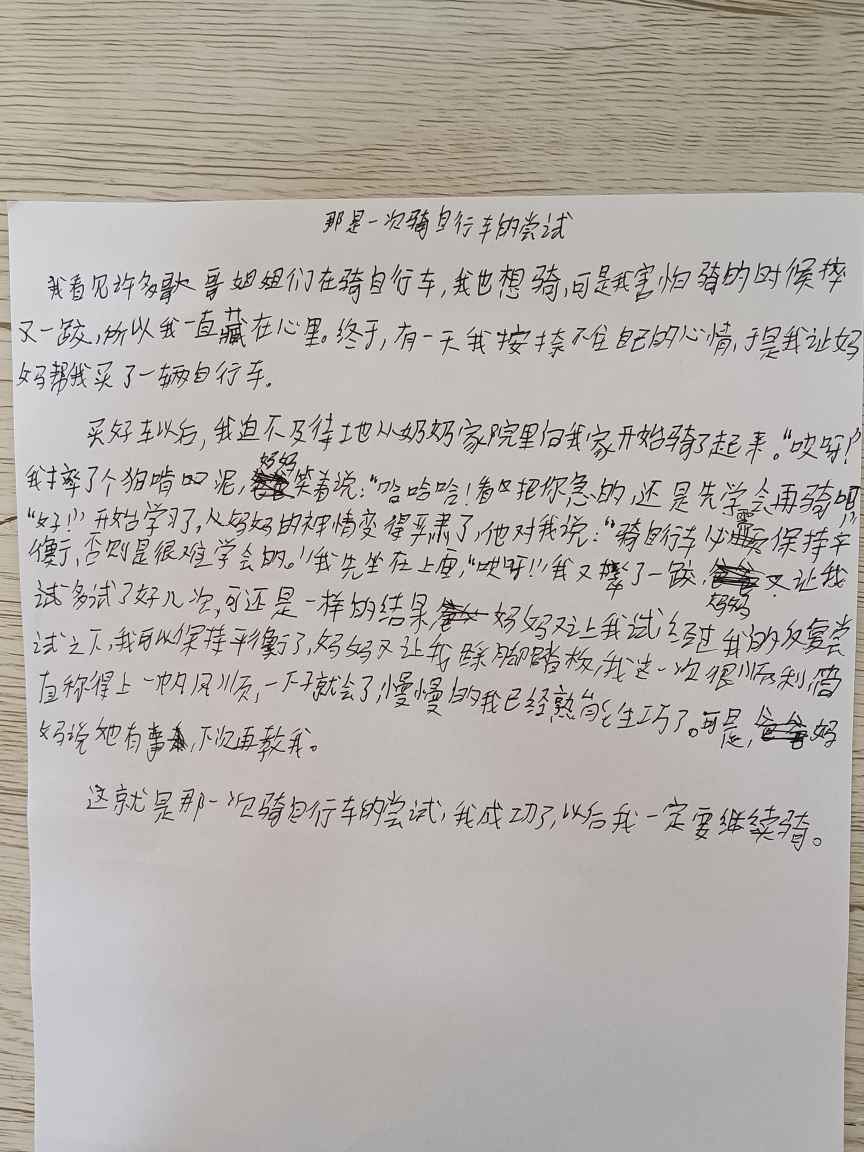 那是一次骑自行车的尝试
我看见许多歌哥姐姐们在骑自行车,我也想骑,可是我害怕骑的时候摔
又一跤,所以我一直藏在心里。终于,有一天我按捺不住自己的心情,于是我让妈
妈帮我买了一辆自行车。
买好车以后,我迫不及待地从奶奶家院里向我家开始骑了起来。“哎呀!”
我摔了个狗啃泥,妈妈笑着说:“哈哈哈!看把你急的,还是先学会再骑吧,”
“好!”开始学习了,从妈妈的神情变得严肃了,他对我说:“骑自行车必需保持平
衡,否则是很难学会的。”我先坐在上面,“哎呀!”我又摔了一跤,妈妈又让我
试多试了好几次,可还是一样的结果,妈妈又让我试经过我的反复尝
试之下,我可以保持平衡了,妈妈又让我踩脚踏板,我这一次很顺利,简
直称得上一帆风顺,一下子就会了,慢慢的我已经熟能生巧了。可是,妈
妈说她有事,下次再教我。
这就是那一次骑自行车的尝试,我成功了,以后我一定要继续骑。